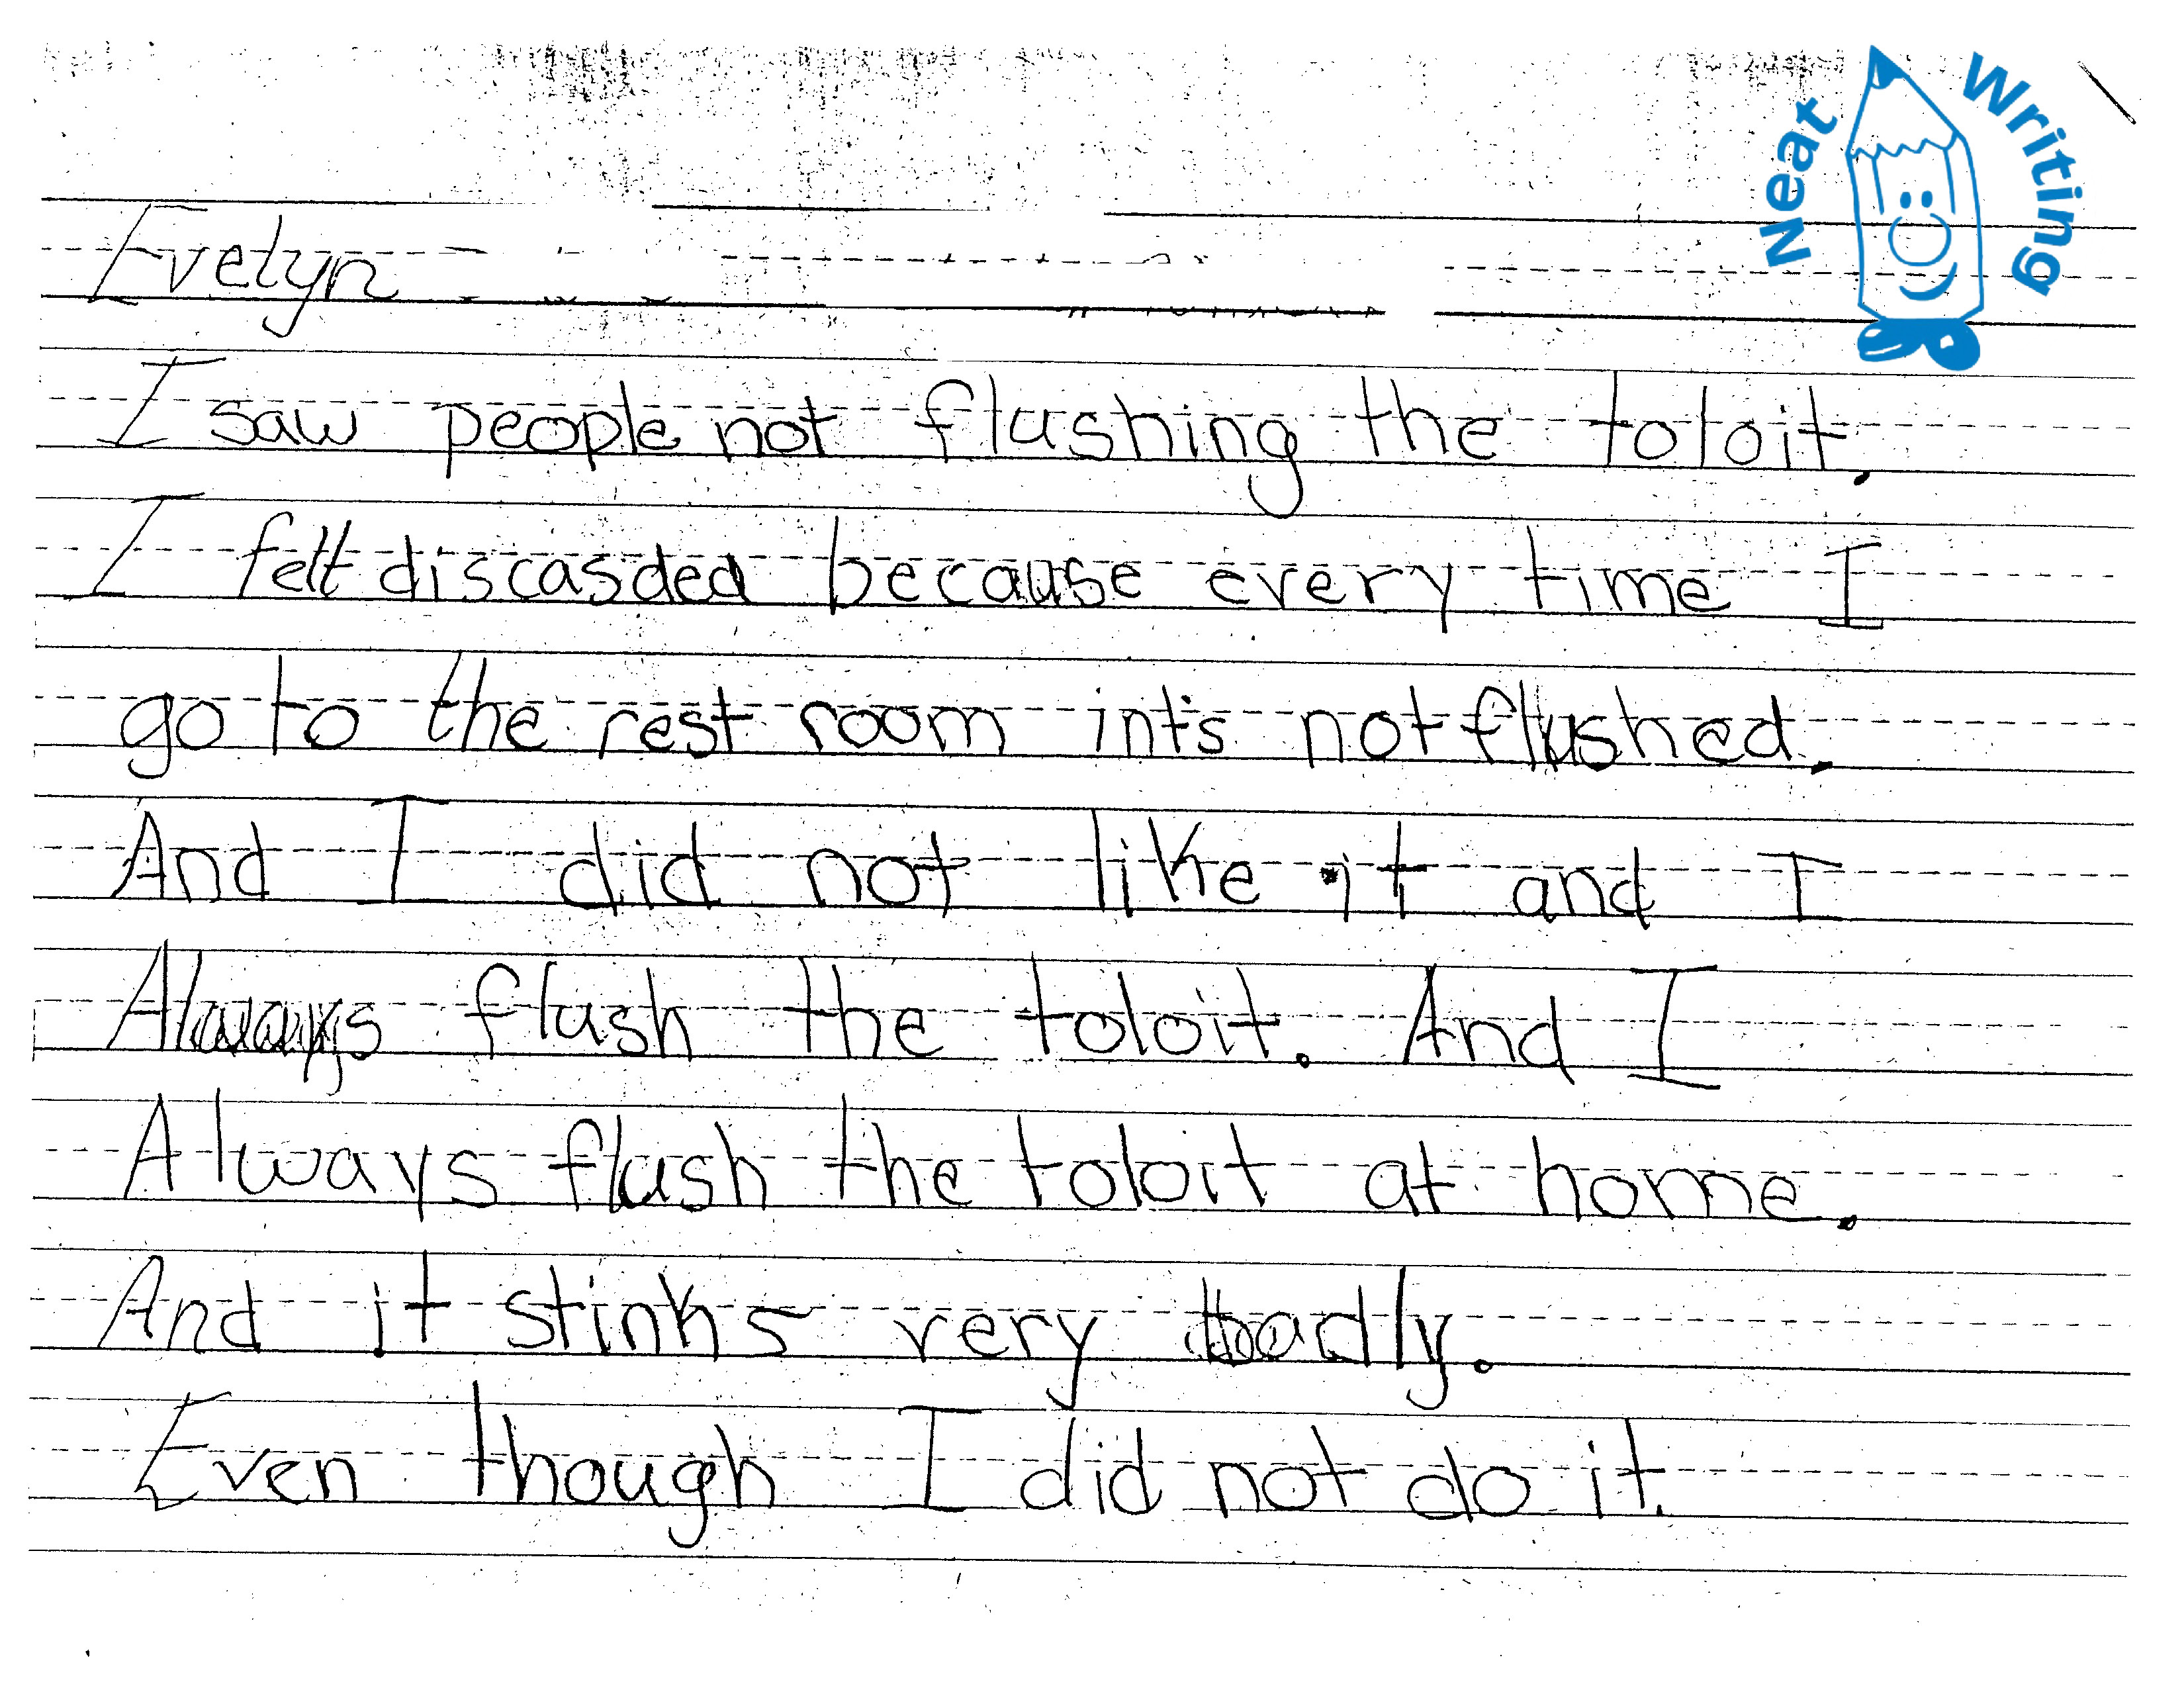 Neat Writing
Evelyn
I saw people not flushing the toloit.
I felt discasded because every time I
go to the rest room int's not flushed.
And I did not like it and I
Always flush the toloit. And I
Always flush the toloit at home.
And it stinks very badly.
Even though I did not do it.